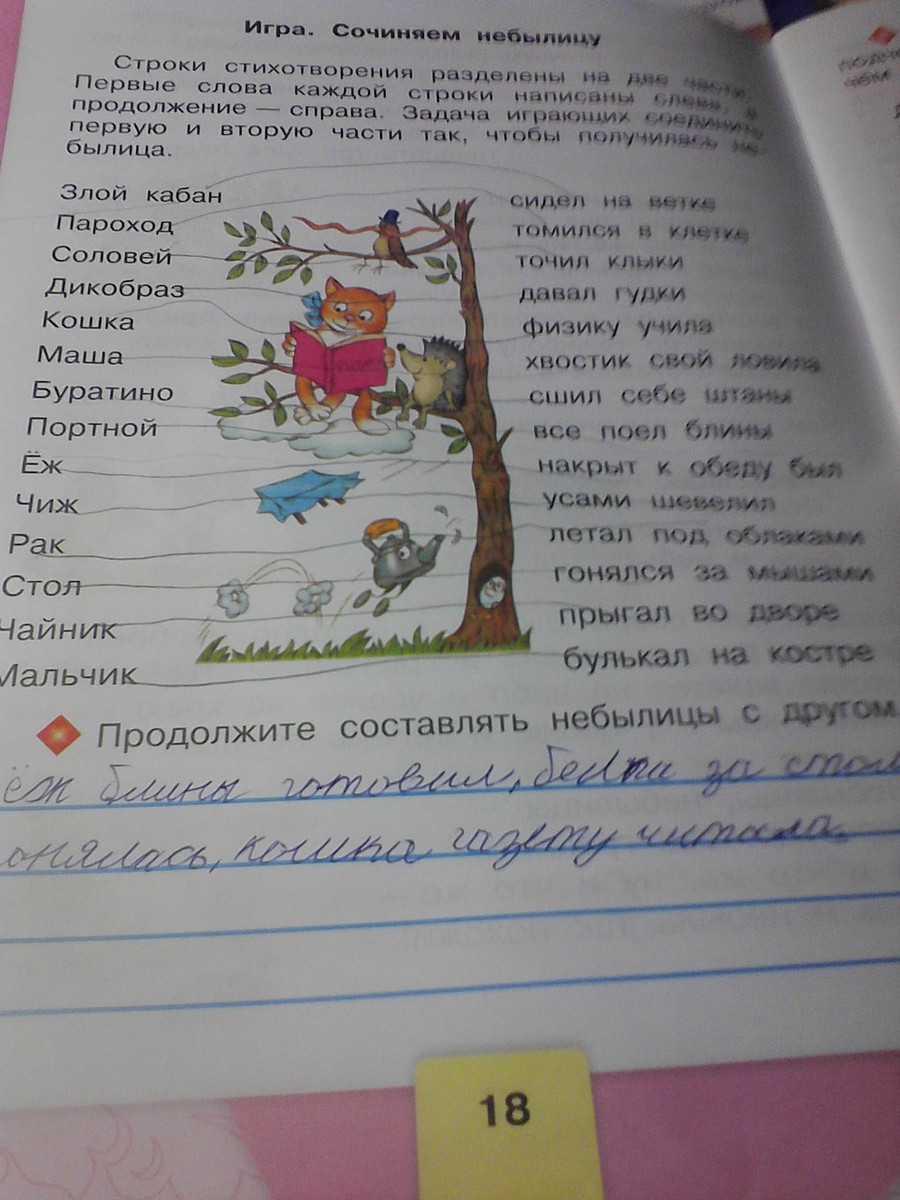 Игра. Сочиняем небылицу
Строки стихотворения разделены на две части.
Первые слова каждой строки написаны слева, а
продолжение — справа. Задача играющих соединить
первую и вторую части так, чтобы получилась не-
былица.
Злой кабан сидел на ветке
Пароход томился в клетке
Соловей точил клыки
Дикобраз давал гудки
Кошка физику учила
Маша хвостик свой ловила
Буратино сшил себе штаны
Портной все поел блины
Ёж накрыт к обеду был
Чиж усами шевелил
Рак летал под облаками
Стол гонялся за мышами
Чайник прыгал во дворе
Мальчик булькал на костре
Продолжите составлять небылицы с другом.
ёж блины готовил, белки за
онялась, кошка газету читала.
18